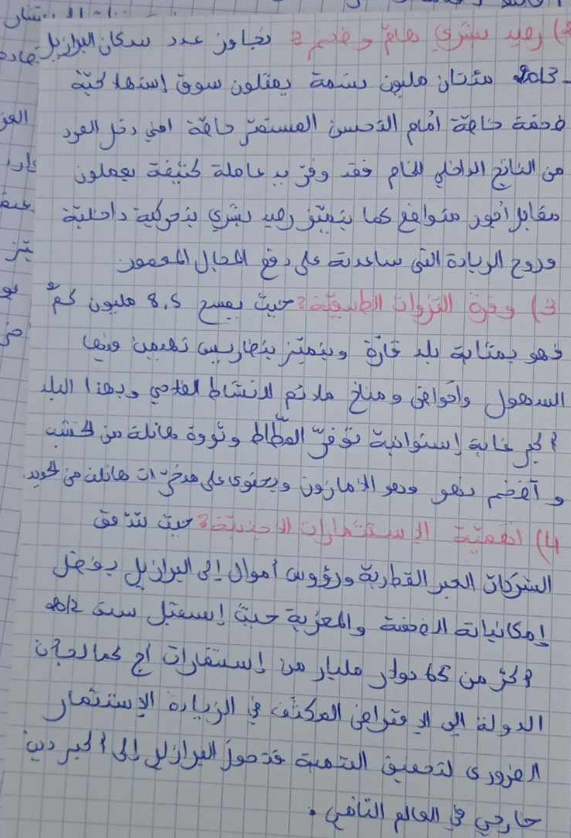 2) رصيد بشري هام وضخم: تجاوز عدد سكان البرازيل
2013 مئتان مليون نسمة يمثلون سوق إستهلاكية
ضخمة خاصة أمام التحسن المستمر خاصة دخل الفرد
من الناتج الداخلي الخام فقد وفر يد عاملة كثيفة يعملون
مقابل أجور متواضع كما يتميز رصيد بشري بتحركية داخلية
وروح الريادة التي ساعدته على دفع المجال المعمور
3) وفرة الثروات الطبيعية: حيث يمسح 8,5 مليون كم²
فهو بمثابة بلد قارة ويتميز بتضاريس تهيمن فيها
السهول وأحواض ومناخ ملائم لانشاط الفلاحي وبهذا البلد
أكبر غابة إستوائية توفر المطاط وثروة هائلة من الخشب
و أضخم نهر وهو الأمازون ويحتوي على مدخرات هائلة من الحديد
4) أهمية الإستثمارات الأجنبية: حيث تتدفق
الشركات العبر القطرية ورؤوس أموال إلى البرازيل بفضل
إمكانياته الضخمة والمغرية حيث إستقبل سنة 2012
أكثر من 65 دولار مليار من إستثمارات أج كما لجأت
الدولة الى الإقتراض المكثف في الزيادة الإستثمار
الضروري لتحقيق التنمية فتحول البرازيل إلى أكبر دين
خارجي في العالم النامي.